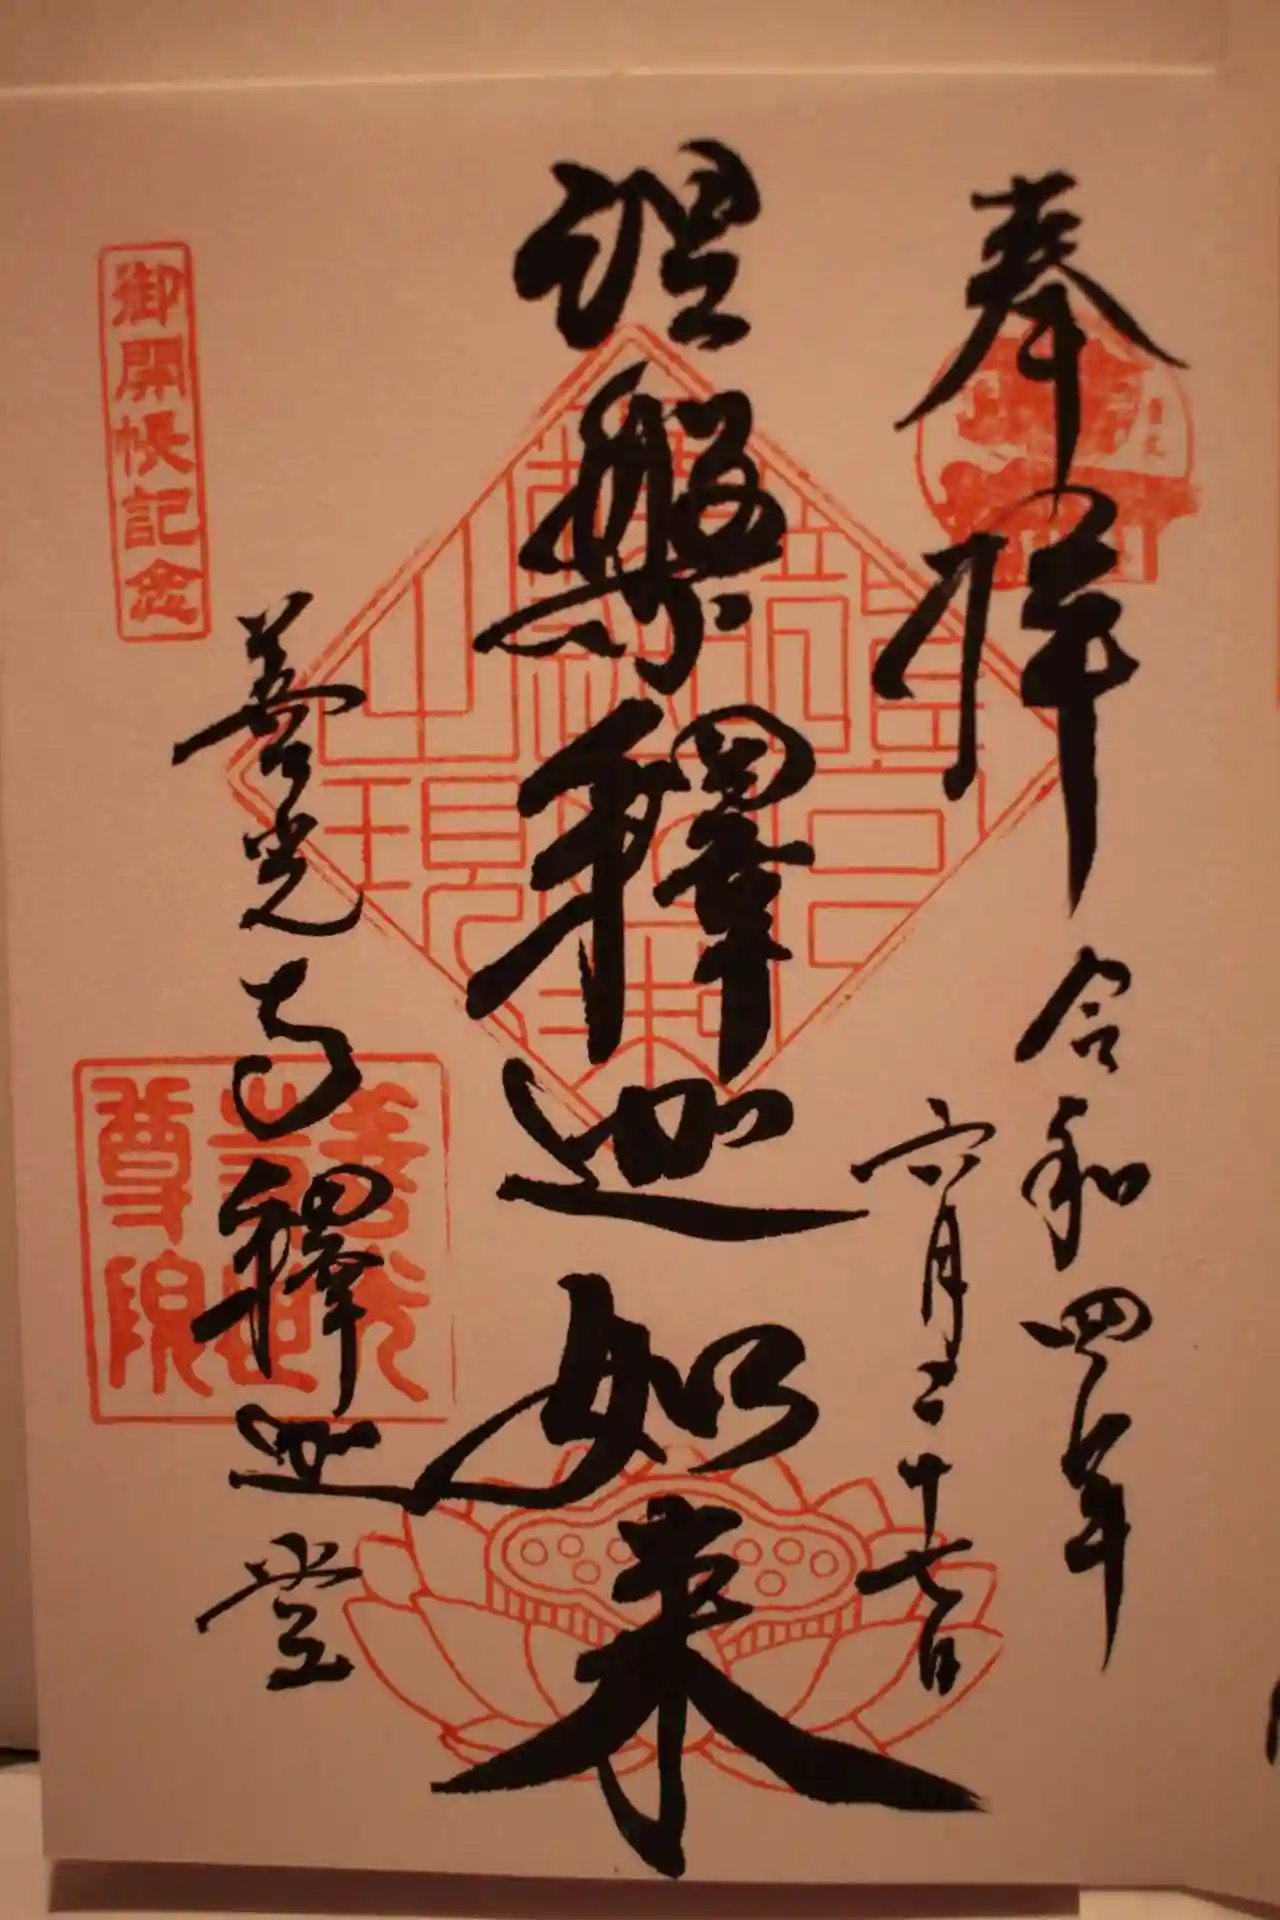 奉拝
令和四年
六月二十七日
涅槃釋迦如来
善光寺釋迦堂
御開帳記念
善光
世尊院